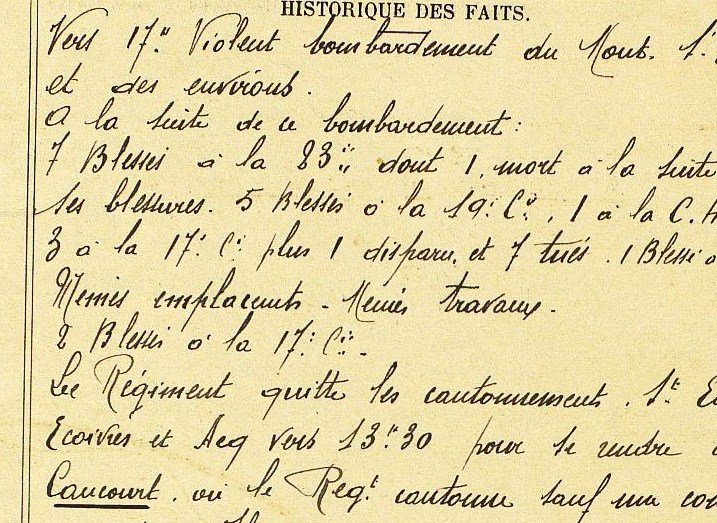 HISTORIQUE DES FAITS.
Vers 17h Violent bombardement du Mont. St
et des environs.
A la suite de ce bombardement:
7 Blessés à la 23e dont 1, mort à la suite
ses blessures. 5 Blessés à la 19e Cie, 1 à la C.
3 à la 17e Cie plus 1 disparu, et 7 tués. 1 Blessé à
Memes emplacents - Memes travaux.
2 Blessés à la 17e Cie.
Le Régiment quitte les cantonnements. St
Ecoivres et Acq vers 13h30 pour se rendre
Caucourt. où le Regt cantonne sauf une